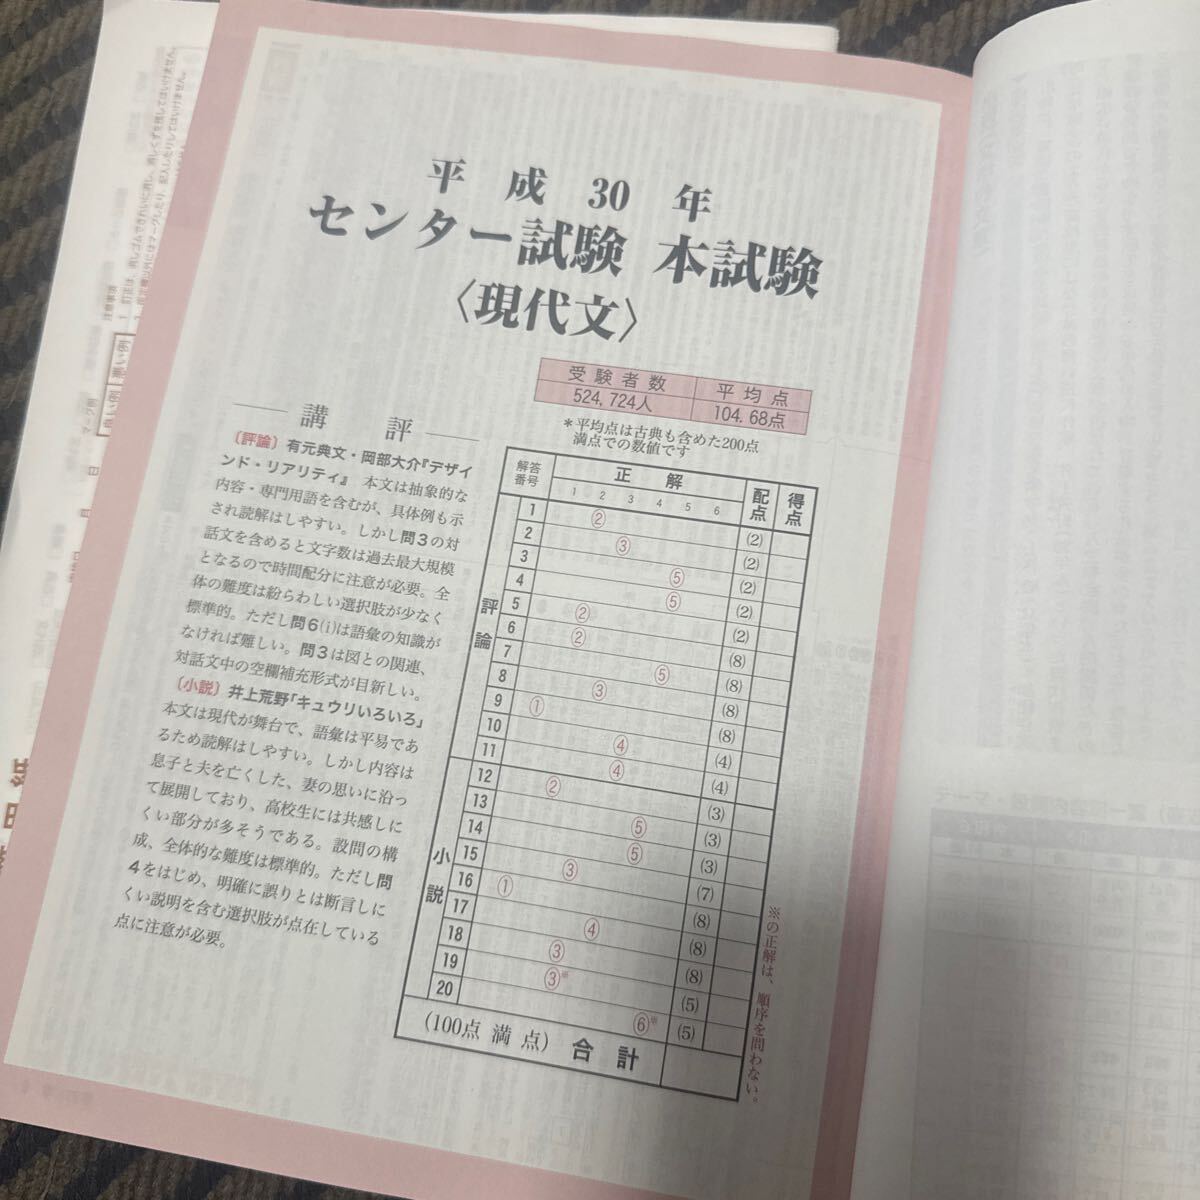 平成30年
センター試験 本試験
〈現代文〉
受験者数 平均点
524,724人 104.68点
＊平均点は古典も含めた200点
満点での数値です
講評
〔評論〕有元典文・岡部大介『デザイ
ンド・リアリティ』 本文は抽象的な
内容・専門用語を含むが、具体例も示
され読解はしやすい。しかし問3の対
話文を含めると文字数は過去最大規模
となるので時間配分に注意が必要。全
体の難度は紛らわしい選択肢が少なく
標準的。ただし問6(i)は語彙の知識が
なければ難しい。問3は図との関連、
対話文中の空欄補充形式が目新しい。
〔小説〕井上荒野「キュウリいろいろ」
本文は現代が舞台で、語彙は平易であ
るため読解はしやすい。しかし内容は
息子と夫を亡くした、妻の思いに沿っ
て展開しており、高校生には共感しに
くい部分が多そうである。設問の構
成、全体的な難度は標準的。ただし問
4をはじめ、明確に誤りとは断言しに
くい説明を含む選択肢が点在している
点に注意が必要。
解答番号 正解 配点 得点
1 2 3 4 5 6
評論
1 ② (2)
2 ③ (2)
3 ⑤ (2)
4 ⑤ (2)
5 ② (2)
6 ② (8)
7 ⑤ (8)
8 ③ (8)
9 ① (8)
10 ④ (4)
11 ④ (4)
小説
12 ② (3)
13 ⑤ (3)
14 ⑤ (3)
15 ③ (7)
16 ① (8)
17 ④ (8)
18 ③ (8)
19 ③※ (5)
20 ⑥※ (5)
(100点満点) 合計
※の正解は、順序を問わない。
注意事項
マーク例
良い例
悪い例